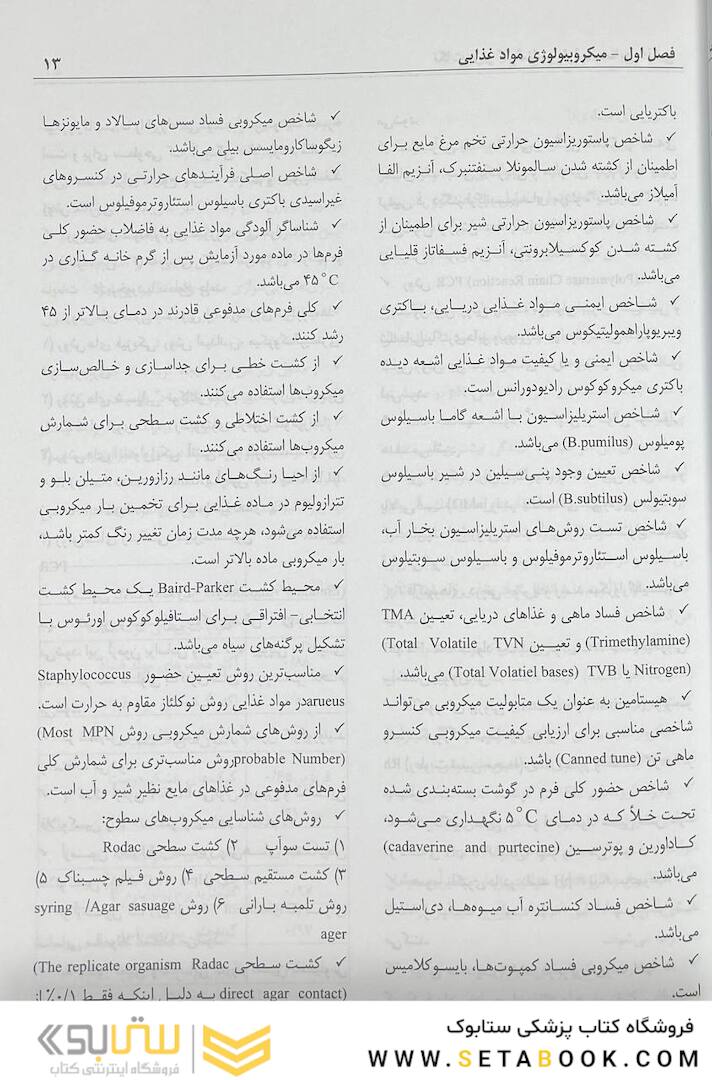 فصل اول – میکروبیولوژی مواد غذایی
۱۳
باکتریایی است.
✓ شاخص پاستوریزاسیون حرارتی تخم مرغ مایع برای
اطمینان از کشته شدن سالمونلا سنفتنبرک، آنزیم الفا
آمیلاز می‌باشد.
✓ شاخص پاستوریزاسیون حرارتی شیر برای اطمینان از
کشته شدن کوکسیلابرونتی، آنزیم فسفاتاز قلیایی
می‌باشد.
✓ شاخص ایمنی مواد غذایی دریایی، باکتری
ویبریوپاراهمولیتیکوس می‌باشد.
✓ شاخص ایمنی و یا کیفیت مواد غذایی اشعه دیده
باکتری میکروکوکوس رادیودورانس است.
✓ شاخص استریلیزاسیون با اشعه گاما باسیلوس
پومیلوس (B.pumilus) می‌باشد.
✓ شاخص تعیین وجود پنی‌سیلین در شیر باسیلوس
سوبتیولس (B.subtilus) است.
✓ شاخص تست روش‌های استریلیزاسیون بخار آب،
باسیلوس استئاروترموفیلوس و باسیلوس سوبتیلوس
می‌باشد.
✓ شاخص فساد ماهی و غذاهای دریایی، تعیین TMA
(Trimethylamine) و تعیین TVN (Total Volatile
Nitrogen) یا TVB (Total Volatiel bases) می‌باشد.
✓ هیستامین به عنوان یک متابولیت میکروبی می‌تواند
شاخصی مناسبی برای ارزیابی کیفیت میکروبی کنسرو
ماهی تن (Canned tune) باشد.
✓ شاخص حضور کلی فرم در گوشت بسته‌بندی شده
تحت خلأ که در دمای ۵°C نگهداری می‌شود،
کاداورین و پوترسین (cadaverine and purtecine)
می‌باشد.
✓ شاخص فساد کنسانتره آب میوه‌ها، دی‌استیل
می‌باشد.
✓ شاخص میکروبی فساد کمپوت‌ها، بایسوکلامیس
است.
✓ شاخص میکروبی فساد سس‌های سالاد و مایونزها
زیگوساکارومایسس بیلی می‌باشد.
✓ شاخص اصلی فرآیندهای حرارتی در کنسروهای
غیراسیدی باکتری باسیلوس استئاروترموفیلوس است.
✓ شناساگر آلودگی مواد غذایی به فاضلاب حضور کلی
فرم‌ها در ماده مورد آزمایش پس از گرم خانه گذاری در
۴۵°C می‌باشد.
✓ کلی فرم‌های مدفوعی قادرند در دمای بالاتر از ۴۵
رشد کنند.
✓ از کشت خطی برای جداسازی و خالص‌سازی
میکروب‌ها استفاده می‌کنند.
✓ از کشت اختلاطی و کشت سطحی برای شمارش
میکروب‌ها استفاده می‌کنند.
✓ از احیا رنگ‌های مانند رزازورین، متیلن بلو و
تترازولیوم در ماده غذایی برای تخمین بار میکروبی
استفاده می‌شود، هرچه مدت زمان تغییر رنگ کمتر باشد،
بار میکروبی ماده بالاتر است.
✓ محیط کشت Baird-Parker یک محیط کشت
انتخابی- افتراقی برای استافیلوکوکوس اورئوس با
تشکیل پرگنه‌های سیاه می‌باشد.
✓ مناسب‌ترین روش تعیین حضور Staphylococcus
arueusدر مواد غذایی روش نوکلئاز مقاوم به حرارت است.
✓ از روش‌های شمارش میکروبی روش MPN (Most
probable Number)روش مناسب‌تری برای شمارش کلی
فرم‌های مدفوعی در غذاهای مایع نظیر شیر و آب است.
✓ روش‌های شناسایی میکروب‌های سطوح:
۱) تست سوآپ ۲) کشت سطحی Rodac
۳) کشت مستقیم سطحی ۴) روش فیلم چسبناک ۵)
روش تلمبه بارانی ۶) روش Agar sasuage/ syring
ager
✓ کشت سطحی Radac (The replicate organism
direct agar contact) به دلیل اینکه فقط ۰/۱٪ از
ستابک
فروشگاه اینترنتی کتاب
فروشگاه کتاب پزشکی ستابوک
WWW.SETABOOK.COM